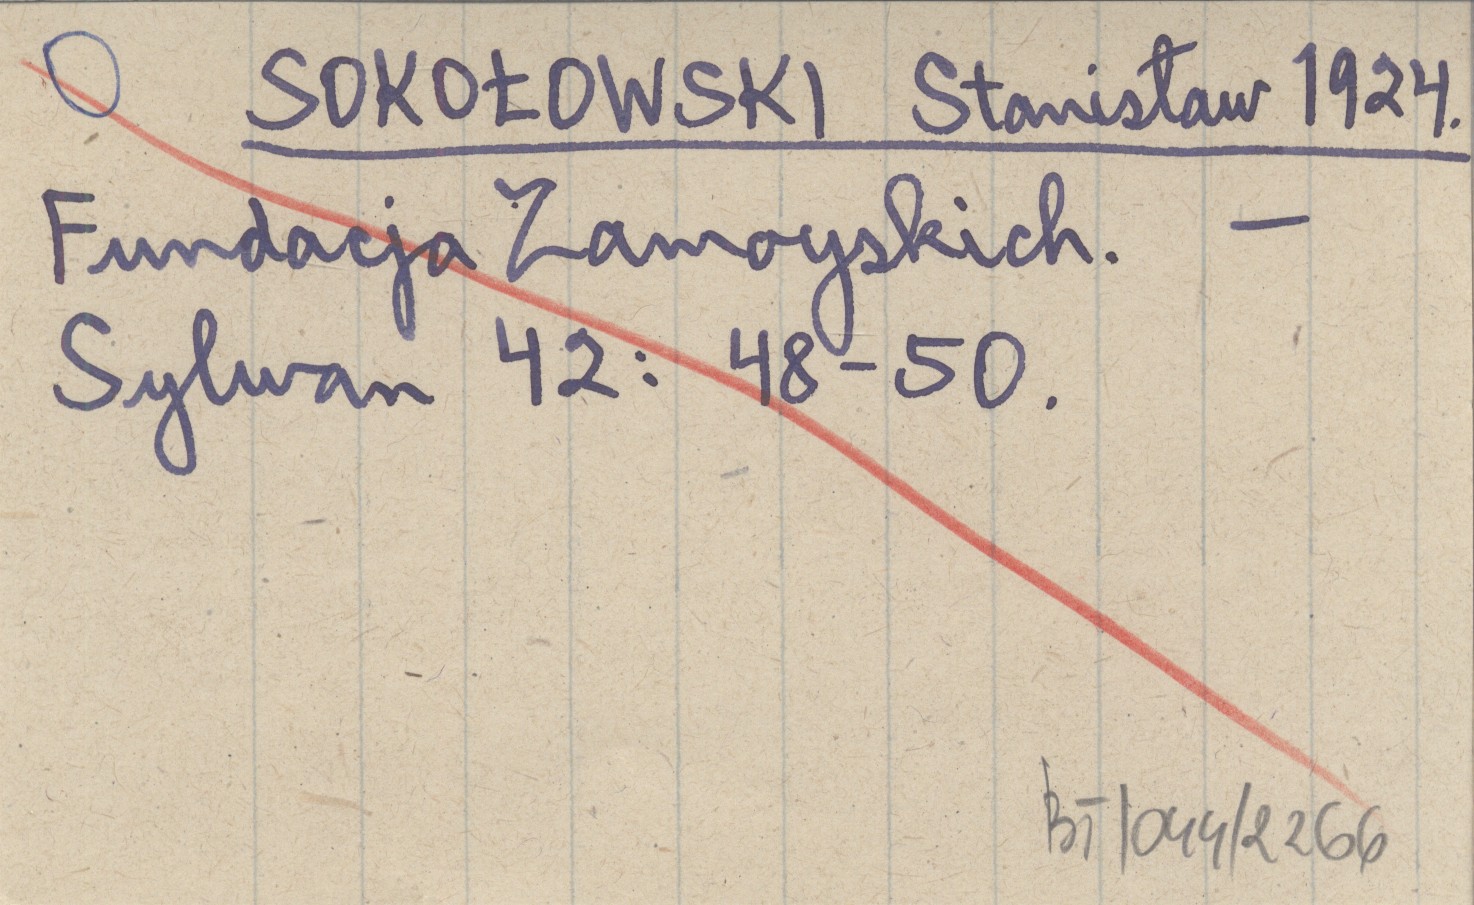 SOKOŁOWSKI Stanisław 1924.
Fundacja Zamoyskich. —
Sylwan 42: 48-50.
BT/044/2266